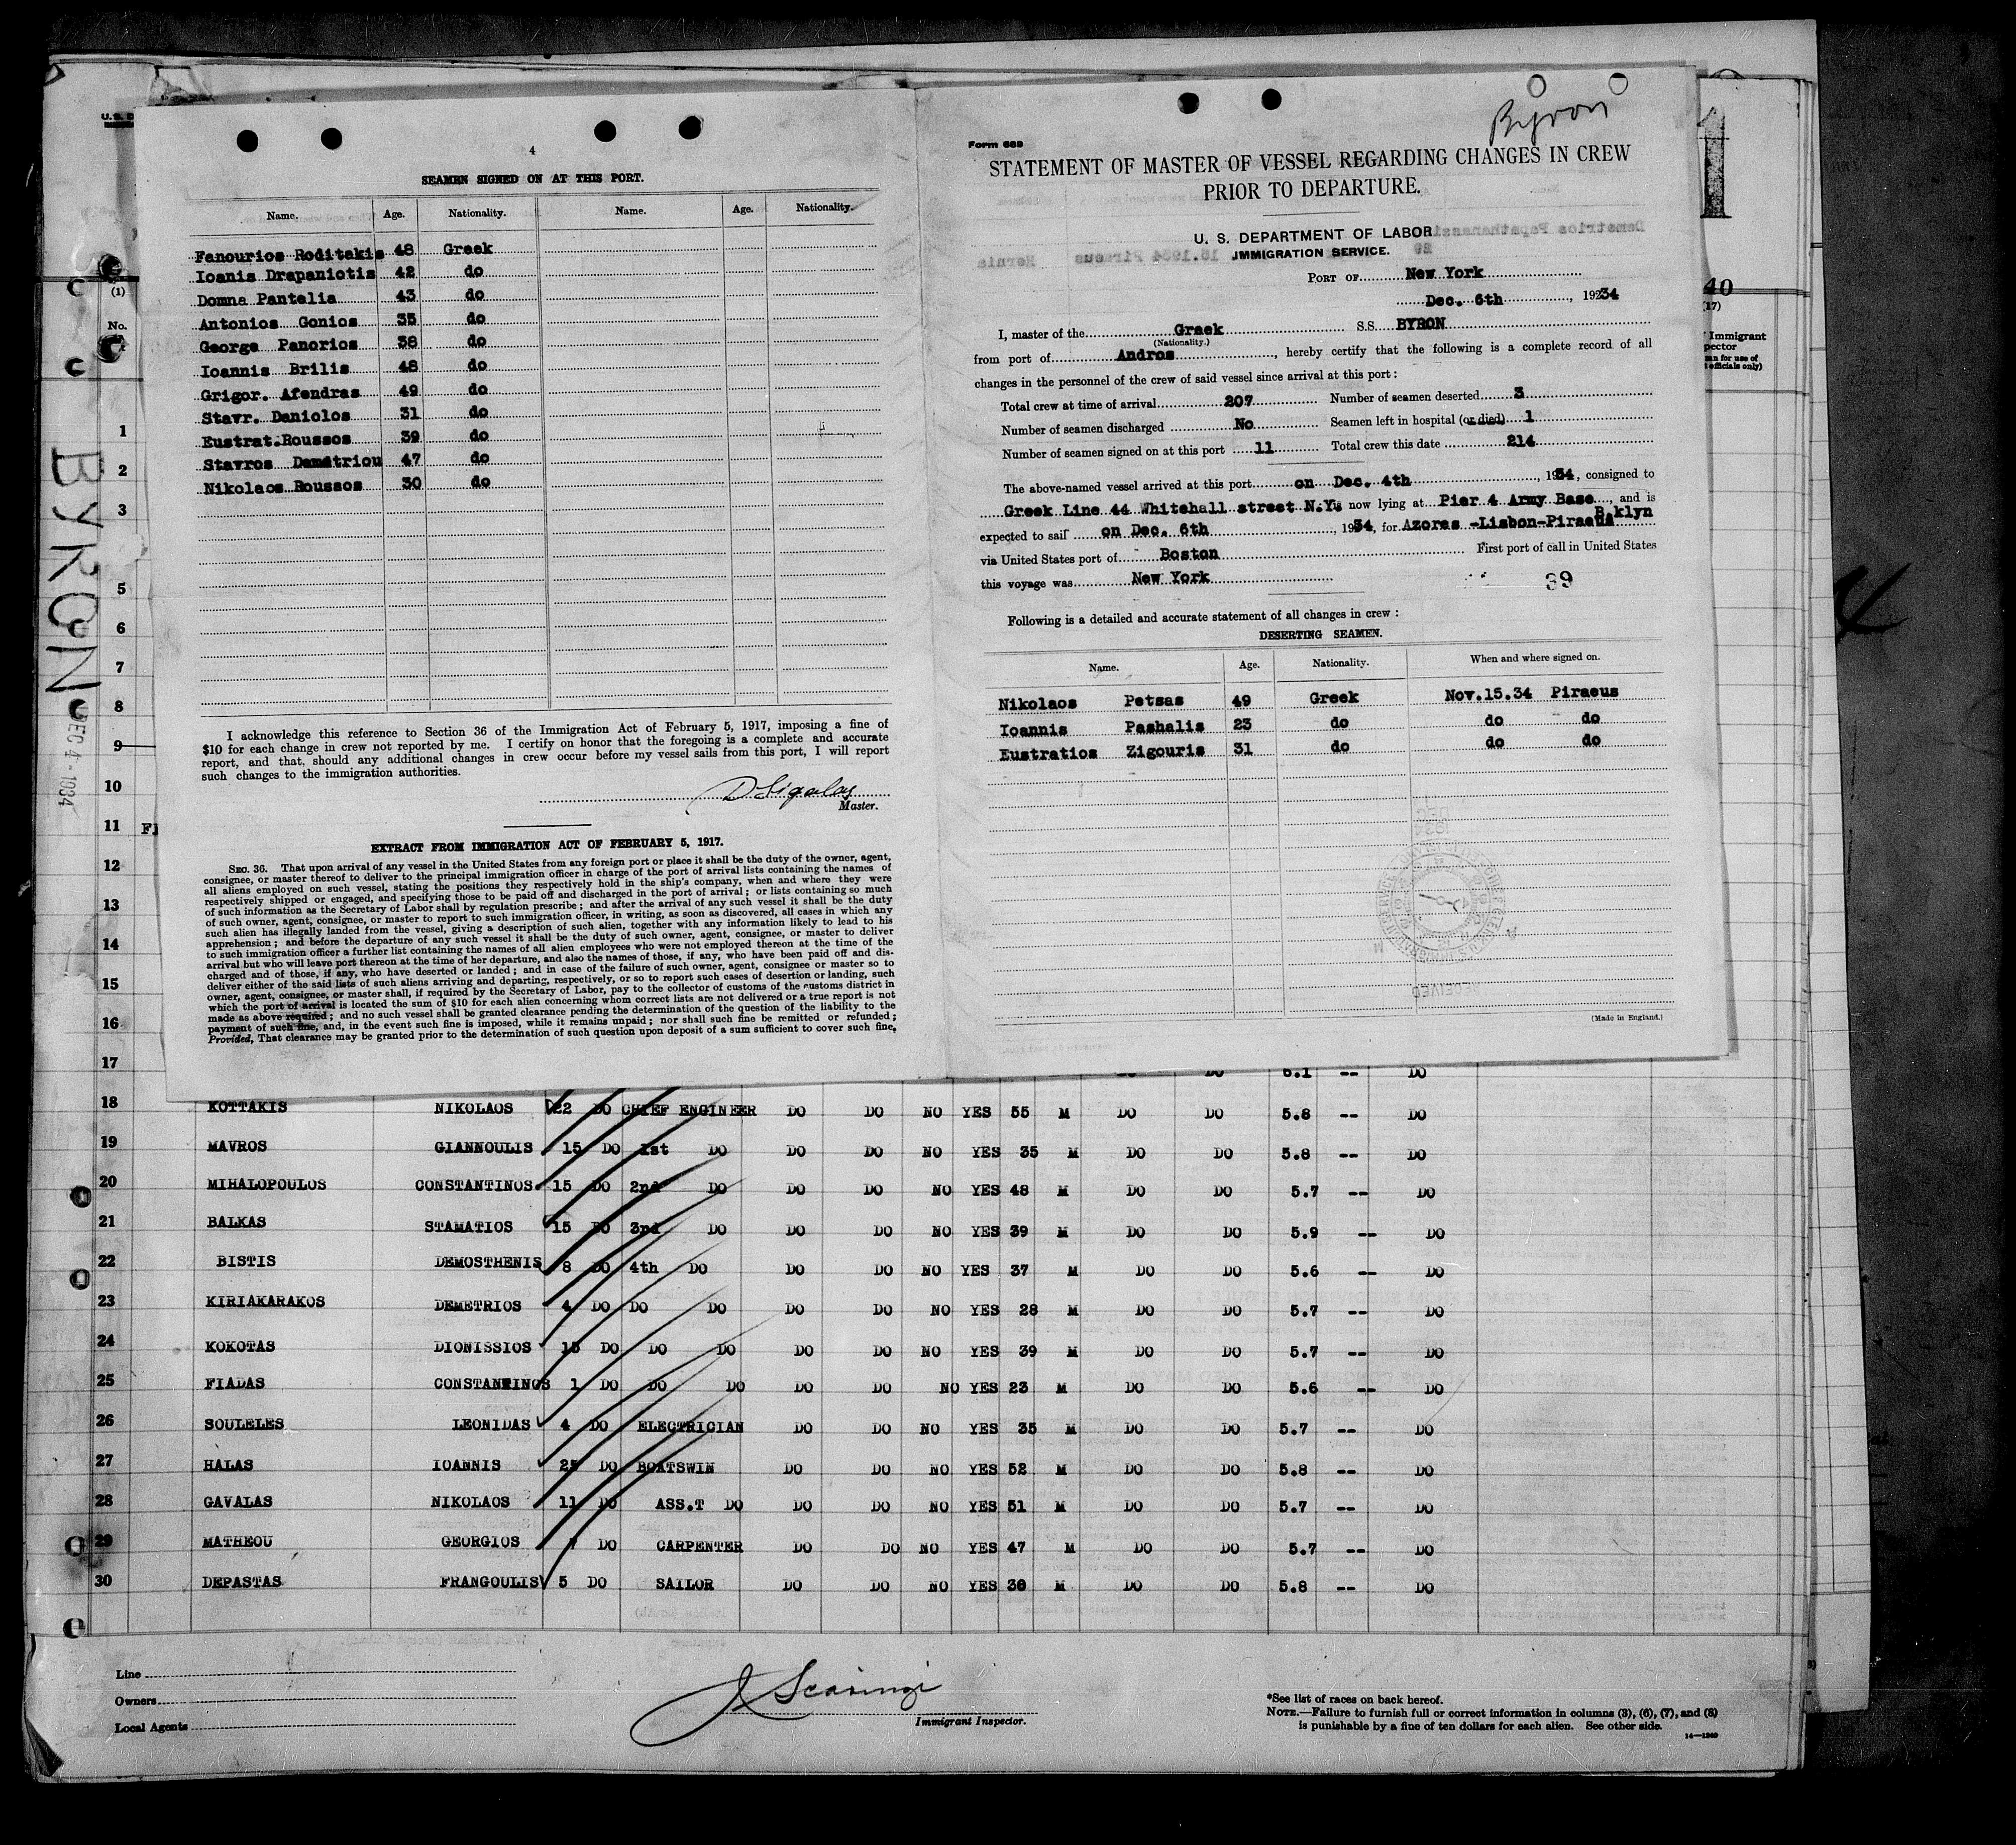 4
SEAMEN SIGNED ON AT THIS PORT.
Name. Age. Nationality. Name. Age. Nationality.
Fanourios Roditakis 48 Greek
Ioanis Drapaniotis 42 do
Domna Pantelia 43 do
Antonios Gonios 35 do
George Panorios 38 do
Ioannis Brilis 48 do
Grigor. Afendras 49 do
Stavr. Daniolos 31 do
Eustrat.Roussos 39 do
Stavros Demetriou 47 do
Nikolaos Roussos 30 do
I acknowledge this reference to Section 36 of the Immigration Act of February 5, 1917, imposing a fine of
$10 for each change in crew not reported by me. I certify on honor that the foregoing is a complete and accurate
report, and that, should any additional changes in crew occur before my vessel sails from this port, I will report
such changes to the immigration authorities.
D Sigalas
Master.
EXTRACT FROM IMMIGRATION ACT OF FEBRUARY 5, 1917.
SEC. 36. That upon arrival of any vessel in the United States from any foreign port or place it shall be the duty of the owner, agent,
consignee, or master thereof to deliver to the principal immigration officer in charge of the port of arrival lists containing the names of
all aliens employed on such vessel, stating the positions they respectively hold in the ship's company, when and where they were
respectively shipped or engaged, and specifying those to be paid off and discharged in the port of arrival; or lists containing so much
of such information as the Secretary of Labor shall by regulation prescribe; and after the arrival of any such vessel it shall be the duty
of such owner, agent, consignee, or master to report to such immigration officer, in writing, as soon as discovered, all cases in which any
such alien has illegally landed from the vessel, giving a description of such alien, together with any information likely to lead to his
apprehension; and before the departure of any such vessel it shall be the duty of such owner, agent, consignee, or master to deliver
to such immigration officer a further list containing the names of all alien employees who were not employed thereon at the time of the
arrival but who will leave port thereon at the time of her departure, and also the names of those, if any, who have been paid off and dis-
charged and of those, if any, who have deserted or landed; and in case of the failure of such owner, agent, consignee or master so to
deliver either of the said lists of such aliens arriving and departing, respectively, or so to report such cases of desertion or landing, such
owner, agent, consignee, or master shall, if required by the Secretary of Labor, pay to the collector of customs of the customs district in
which the port of arrival is located the sum of $10 for each alien concerning whom correct lists are not delivered or a true report is not
made as above required; and no such vessel shall be granted clearance pending the determination of the question of the liability to the
payment of such fine, and, in the event such fine is imposed, while it remains unpaid; nor shall such fine be remitted or refunded;
Provided, That clearance may be granted prior to the determination of such question upon deposit of a sum sufficient to cover such fine.
Byron
Form 689
STATEMENT OF MASTER OF VESSEL REGARDING CHANGES IN CREW
PRIOR TO DEPARTURE.
U. S. DEPARTMENT OF LABOR
IMMIGRATION SERVICE.
PORT OF New York
Dec. 6th, 1934
I, master of the Greek S.S. BYRON
(Nationality.)
from port of Andros, hereby certify that the following is a complete record of all
changes in the personnel of the crew of said vessel since arrival at this port:
Total crew at time of arrival 207 Number of seamen deserted 3
Number of seamen discharged No Seamen left in hospital (or died) 1
Number of seamen signed on at this port 11 Total crew this date 214
The above-named vessel arrived at this port on Dec. 4th, 1934, consigned to
Greek Line 44 Whitehall street N.Y. now lying at Pier 4 Army Base, and is
B klyn
expected to sail on Dec. 6th, 1934, for Azores -Lisbon-Piraeus
via United States port of Boston First port of call in United States
this voyage was New York
39
Following is a detailed and accurate statement of all changes in crew:
DESERTING SEAMEN.
Name. Age. Nationality. When and where signed on.
Nikolaos Petsas 49 Greek Nov.15.34 Piraeus
Ioannis Pashalis 23 do do do
Eustratios Zigouris 31 do do do
(Made in England.)
BYRON
DEC 4 - 1934
U. S. D
(1)
No.
1
2
3
5
6
7
8
9
10
11 FI
12
13
14
15
16
17 DO 6.1 -- DO
40
(17)
Immigrant
18 KOTTAKIS NIKOLAOS 22 DO CHIEF ENGINEER DO DO NO YES 55 M DO DO 5.8 -- DO
19 MAVROS GIANNOULIS 15 DO 1st DO DO DO NO YES 35 M DO DO 5.8 -- DO
20 MIHALOPOULOS CONSTANTINOS 15 DO 2nd DO DO DO NO YES 48 M DO DO 5.7 -- DO
21 BALKAS STAMATIOS 15 DO 3rd DO DO DO NO YES 39 M DO DO 5.9 -- DO
22 BISTIS DEMOSTHENIS 8 DO 4th DO DO DO NO YES 37 M DO DO 5.6 -- DO
23 KIRIAKARAKOS DEMETRIOS 4 DO DO DO DO DO NO YES 28 M DO DO 5.7 -- DO
24 KOKOTAS DIONISSIOS 15 DO DO DO DO DO NO YES 39 M DO DO 5.7 -- DO
25 FIADAS CONSTANTINOS 1 DO DO DO DO DO NO YES 23 M DO DO 5.6 -- DO
26 SOULELES LEONIDAS 4 DO ELECTRICIAN DO DO NO YES 35 M DO DO 5.7 -- DO
27 HALAS IOANNIS 25 DO BOATSWIN DO DO NO YES 52 M DO DO 5.8 -- DO
28 GAVALAS NIKOLAOS 11 DO ASS.T DO DO DO NO YES 51 M DO DO 5.7 -- DO
29 MATHEOU GEORGIOS DO CARPENTER DO DO NO YES 47 M DO DO 5.7 -- DO
30 DEPASTAS FRANGOULIS 5 DO SAILOR DO DO NO YES 30 M DO DO 5.8 -- DO
Line
Owners
Local Agents
Immigrant Inspector.
*See list of races on back hereof.
NOTE.—Failure to furnish full or correct information in columns (3), (6), (7), and (8)
is punishable by a fine of ten dollars for each alien. See other side.
14—1240